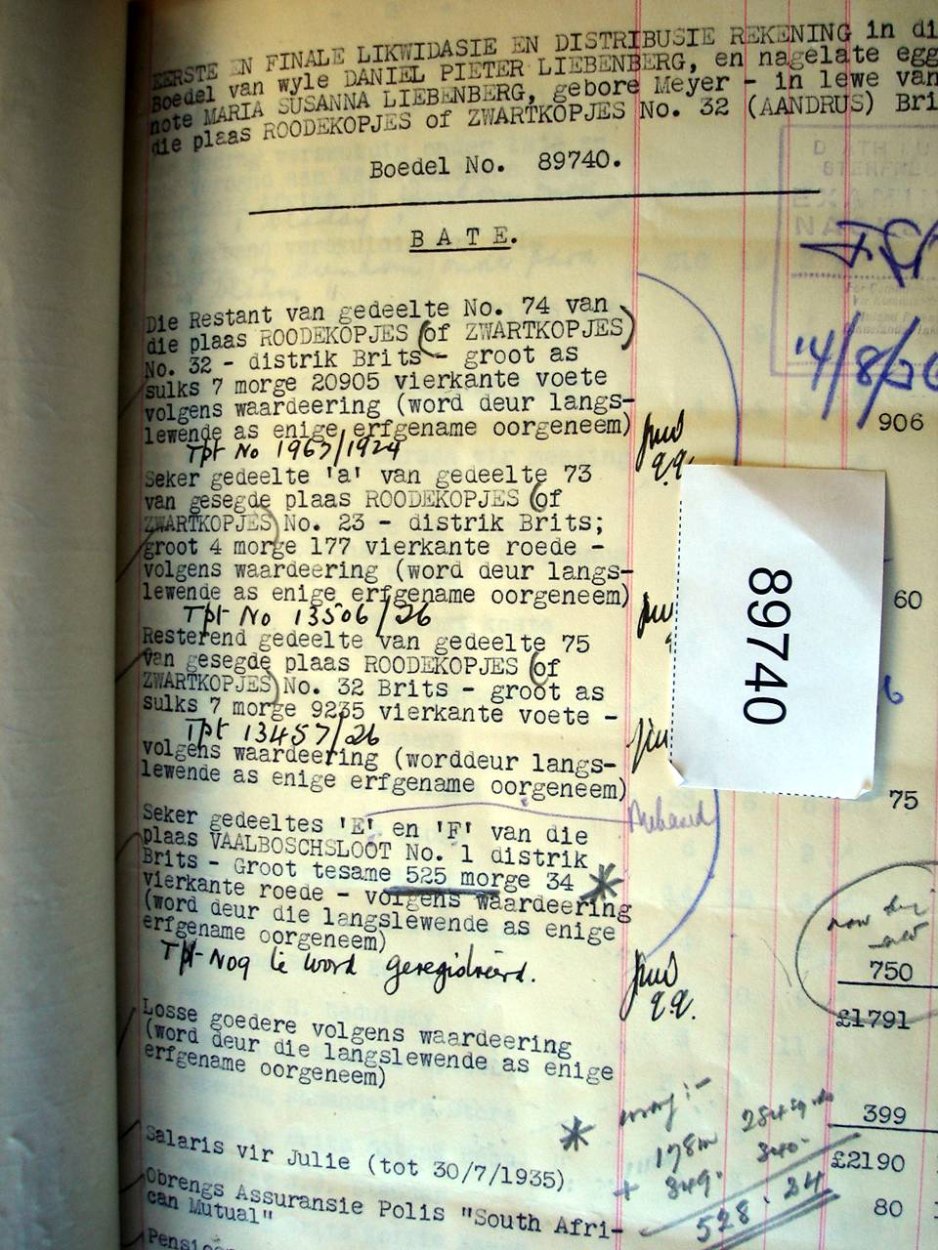 EERSTE EN FINALE LIKWIDASIE EN DISTRIBUSIE REKENING in di
Boedel van wyle DANIEL PIETER LIEBENBERG, en nagelate egg
note MARIA SUSANNA LIEBENBERG, gebore Meyer - in lewe van
die plaas ROODEKOPJES of ZWARTKOPJES No. 32 (AANDRUS) Bri
Boedel No. 89740.
B A T E.
Die Restant van gedeelte No. 74 van
die plaas ROODEKOPJES (of ZWARTKOPJES)
No. 32 - distrik Brits - groot as
sulks 7 morge 20905 vierkante voete
volgens waardeering (word deur langs-
lewende as enige erfgename oorgeneem)
906
Tpt No 1963/1924
q.q.
Seker gedeelte 'a' van gedeelte 73
van gesegde plaas ROODEKOPJES (of
ZWARTKOPJES) No. 23 - distrik Brits;
groot 4 morge 177 vierkante roede -
volgens waardeering (word deur langs-
lewende as enige erfgename oorgeneem)
60
Tpt No 13506/26
Resterend gedeelte van gedeelte 75
van gesegde plaas ROODEKOPJES (of
ZWARTKOPJES) No. 32 Brits - groot as
sulks 7 morge 9235 vierkante voete -
Tpt 13457/26
volgens waardeering (worddeur langs-
lewende as enige erfgename oorgeneem)
75
89740
Seker gedeeltes 'E' en 'F' van die
plaas VAALBOSCHSLOOT No. 1 distrik
Brits - Groot tesame 525 morge 34 *
vierkante roede - volgens waardeering
(word deur die langslewende as enige
erfgename oorgeneem)
750
Tpt Nog te word geregistreerd.
q.q.
£1791
Losse goedere volgens waardeering
(word deur die langslewende as enige
erfgename oorgeneem)
399
*
178m
+ 349. 340.
528. 24
£2190
Salaris vir Julie (tot 30/7/1935)
Obrengs Assuransie Polis "South Afri-
can Mutual"
80 10